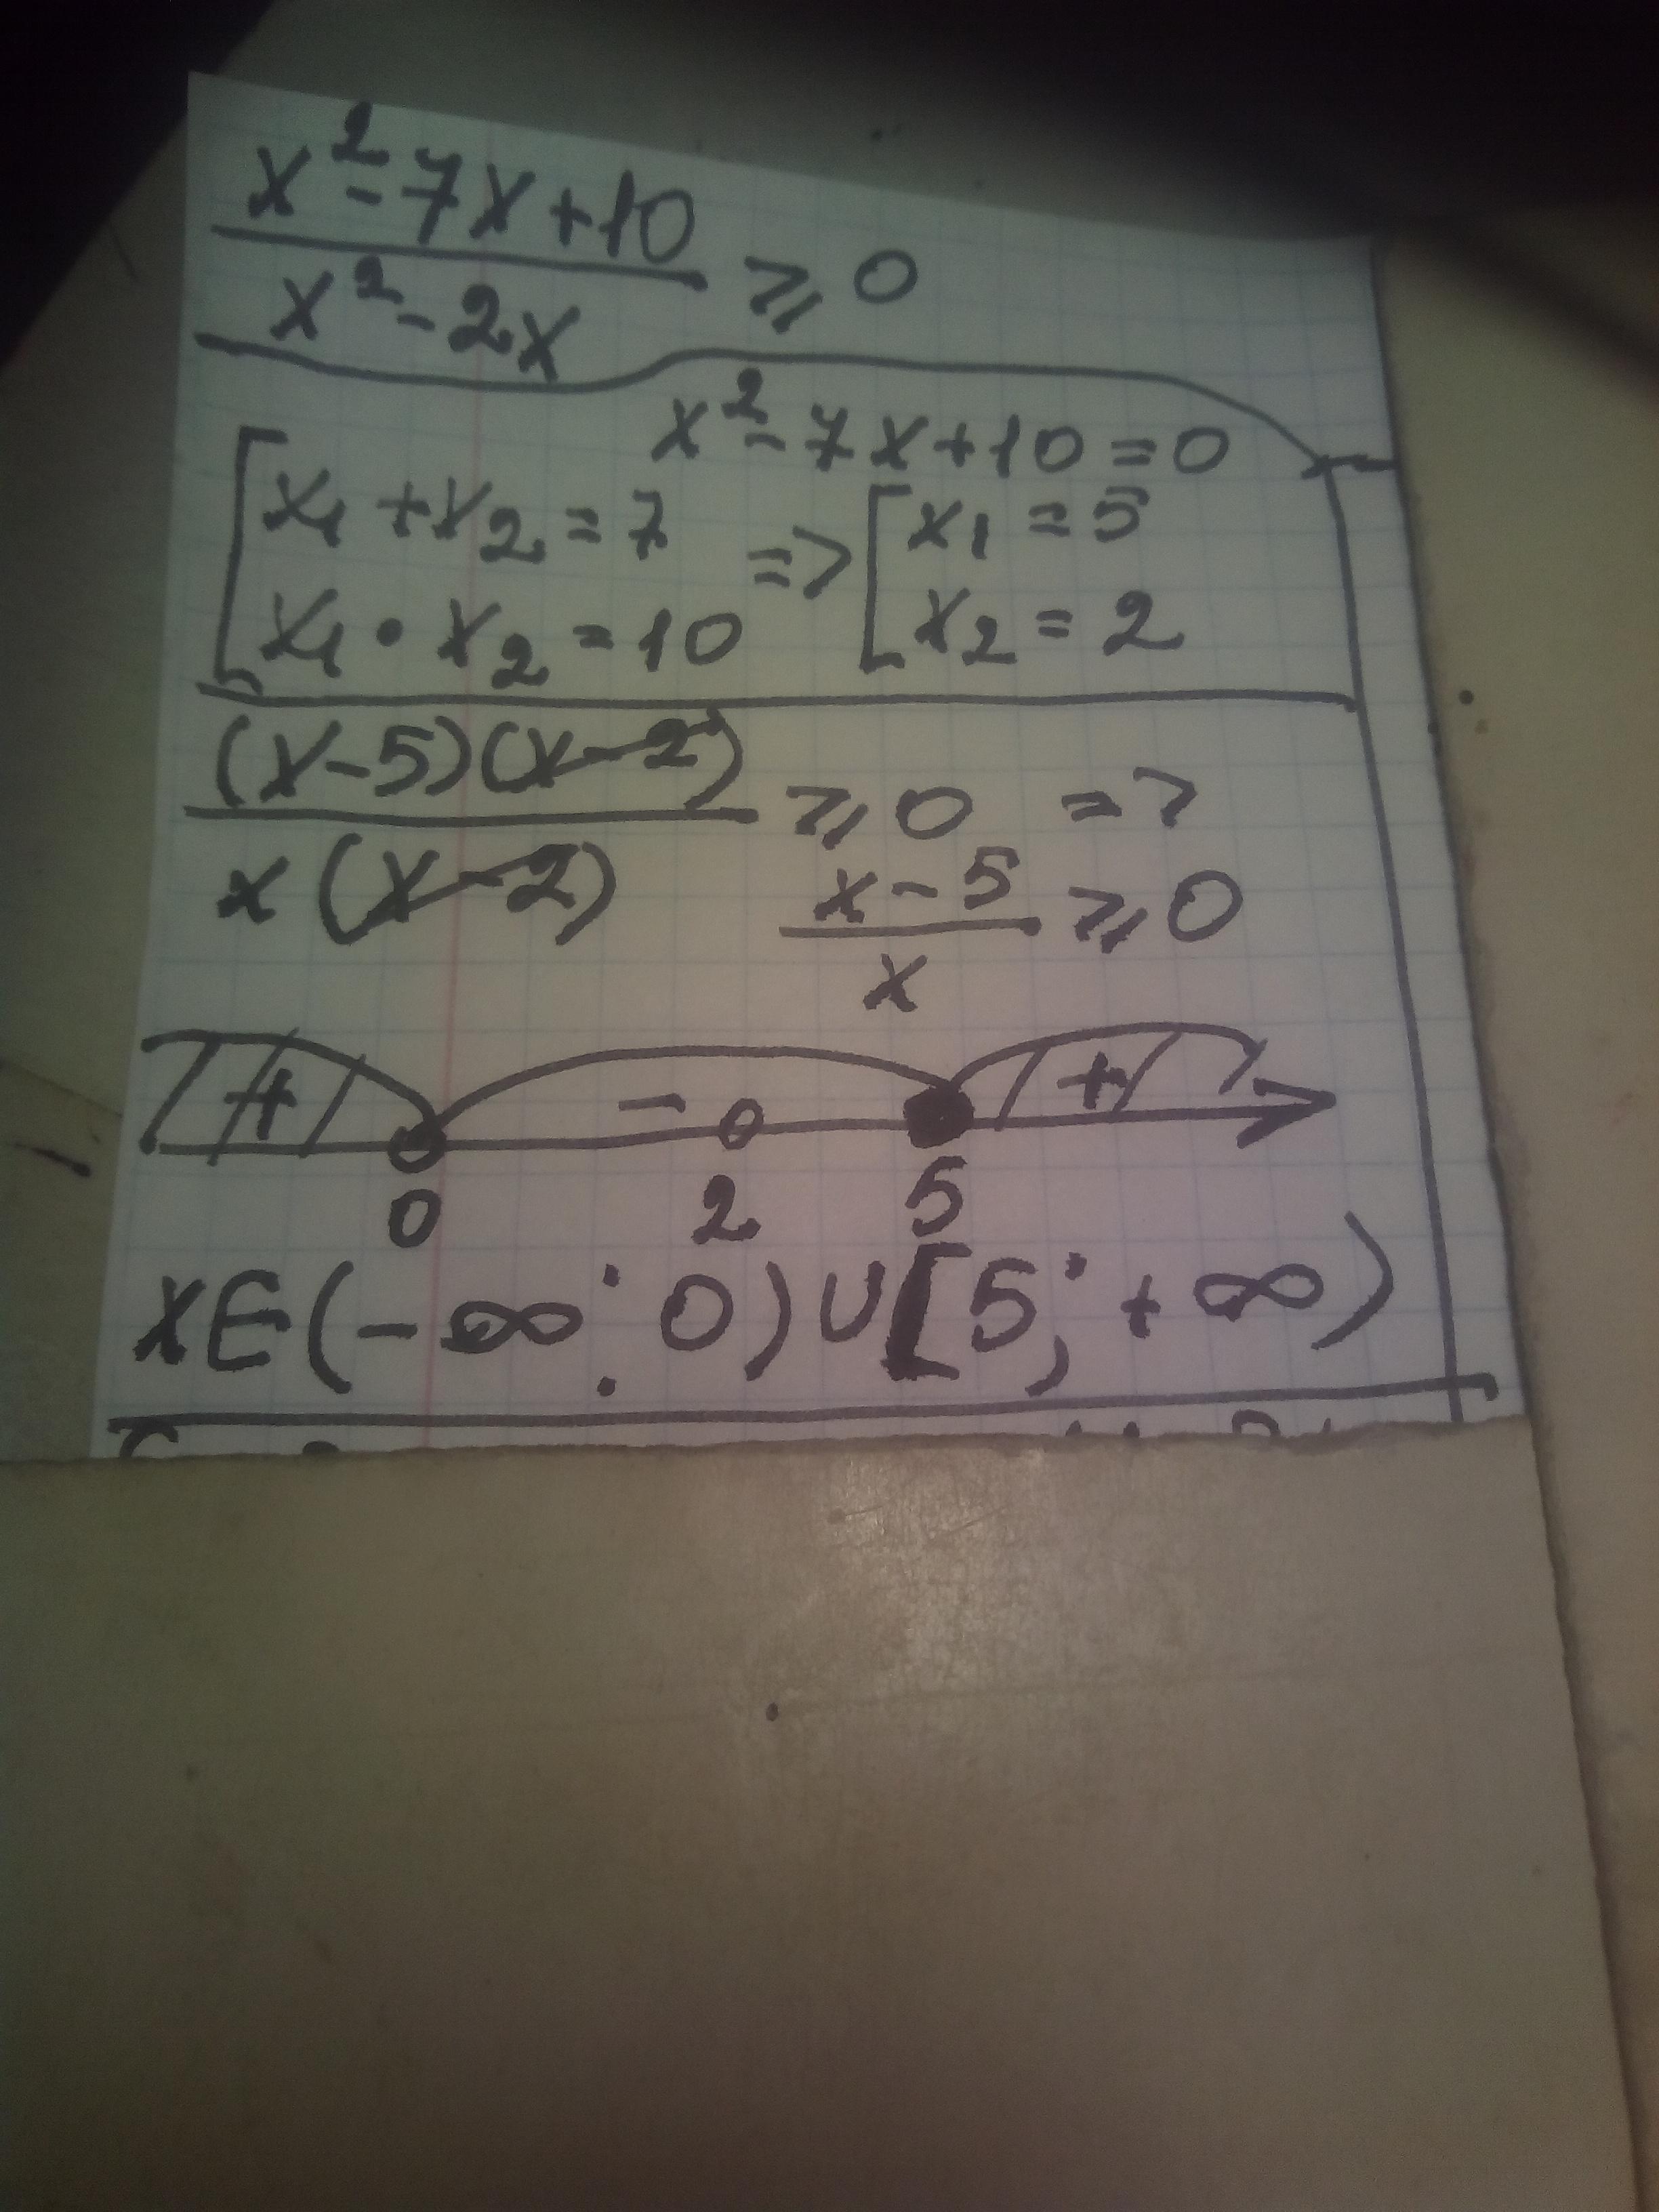 x²-7x+10
x²-2x
≥ 0
x²-7x+10=0
[x₁+x₂=7
x₁·x₂=10
=> [x₁=5
x₂=2
(x-5)(x-2)
x(x-2)
≥0 =>
x-5
x
≥0
+ - +
0 2 5
x∈(-∞; 0)∪[5; +∞)